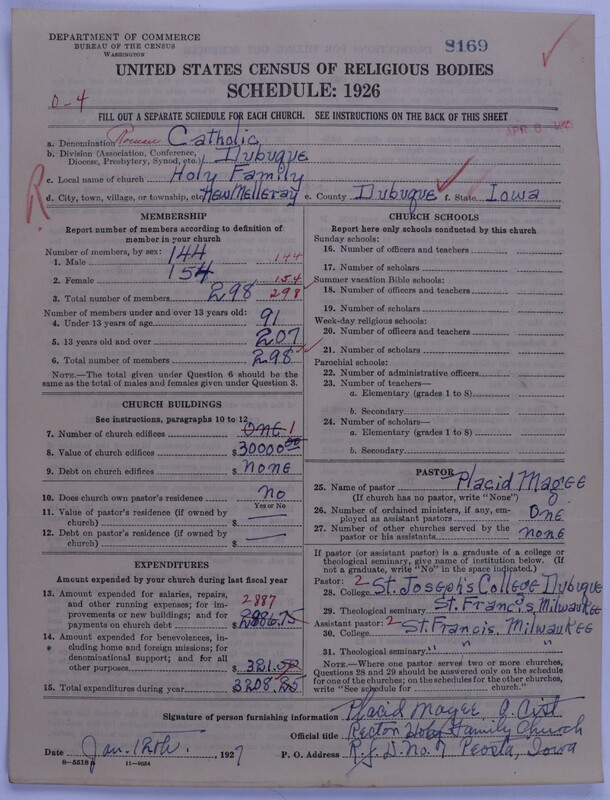 DEPARTMENT OF COMMERCE
BUREAU OF THE CENSUS
WASHINGTON
8169
UNITED STATES CENSUS OF RELIGIOUS BODIES
SCHEDULE: 1926
0-4
FILL OUT A SEPARATE SCHEDULE FOR EACH CHURCH. SEE INSTRUCTIONS ON THE BACK OF THIS SHEET
APR 8
a. Denomination Roman Catholic
b. Division (Association, Conference, Diocese, Presbytery, Synod, etc.) Dubuque
c. Local name of church Holy Family
d. City, town, village, or township, etc. New Melleray e. County Dubuque f. State Iowa
R
MEMBERSHIP
Report number of members according to definition of
member in your church
Number of members, by sex:
1. Male 144 144
2. Female 154 154
3. Total number of members 298 298
Number of members under and over 13 years old:
4. Under 13 years of age 91
5. 13 years old and over 207
6. Total number of members 298
NOTE.—The total given under Question 6 should be the
same as the total of males and females given under Question 3.
CHURCH BUILDINGS
See instructions, paragraphs 10 to 12
7. Number of church edifices ONE 1
8. Value of church edifices $30000 00
9. Debt on church edifices $ NONE
10. Does church own pastor's residence NO
Yes or No
11. Value of pastor's residence (if owned by
church) $ —
12. Debt on pastor's residence (if owned by
church) $ —
EXPENDITURES
Amount expended by your church during last fiscal year
13. Amount expended for salaries, repairs,
and other running expenses; for im-
provements or new buildings; and for
payments on church debt $ 2886.75 2887
14. Amount expended for benevolences, in-
cluding home and foreign missions; for
denominational support; and for all
other purposes $ 321.
15. Total expenditures during year $ 3208.
CHURCH SCHOOLS
Report here only schools conducted by this church
Sunday schools:
16. Number of officers and teachers
17. Number of scholars
Summer vacation Bible schools:
18. Number of officers and teachers
19. Number of scholars
Week-day religious schools:
20. Number of officers and teachers
21. Number of scholars
Parochial schools:
22. Number of administrative officers
23. Number of teachers—
a. Elementary (grades 1 to 8)
b. Secondary
24. Number of scholars—
a. Elementary (grades 1 to 8)
b. Secondary
PASTOR
25. Name of pastor Placid Magee
(If church has no pastor, write "None")
26. Number of ordained ministers, if any, em-
ployed as assistant pastors ONE
27. Number of other churches served by the
pastor or his assistants NONE
If pastor (or assistant pastor) is a graduate of a college or
theological seminary, give name of institution below. (If
not a graduate, write "No" in the space indicated.)
Pastor: 2
28. College St. Joseph's College Dubuque
29. Theological seminary St. Francis, Milwaukee
Assistant pastor: 2
30. College St. Francis, Milwaukee
31. Theological seminary " " "
NOTE.—Where one pastor serves two or more churches,
Questions 28 and 29 should be answered only on the schedule
for one of the churches; on the schedules for the other churches,
write "See schedule for church."
Signature of person furnishing information Placid Magee O. Cist
Official title Rector Holy Family Church
Date Jan. 12th, 1927
P. O. Address R.F.D. No. 7 Peosta, Iowa
8—5518 11—9054